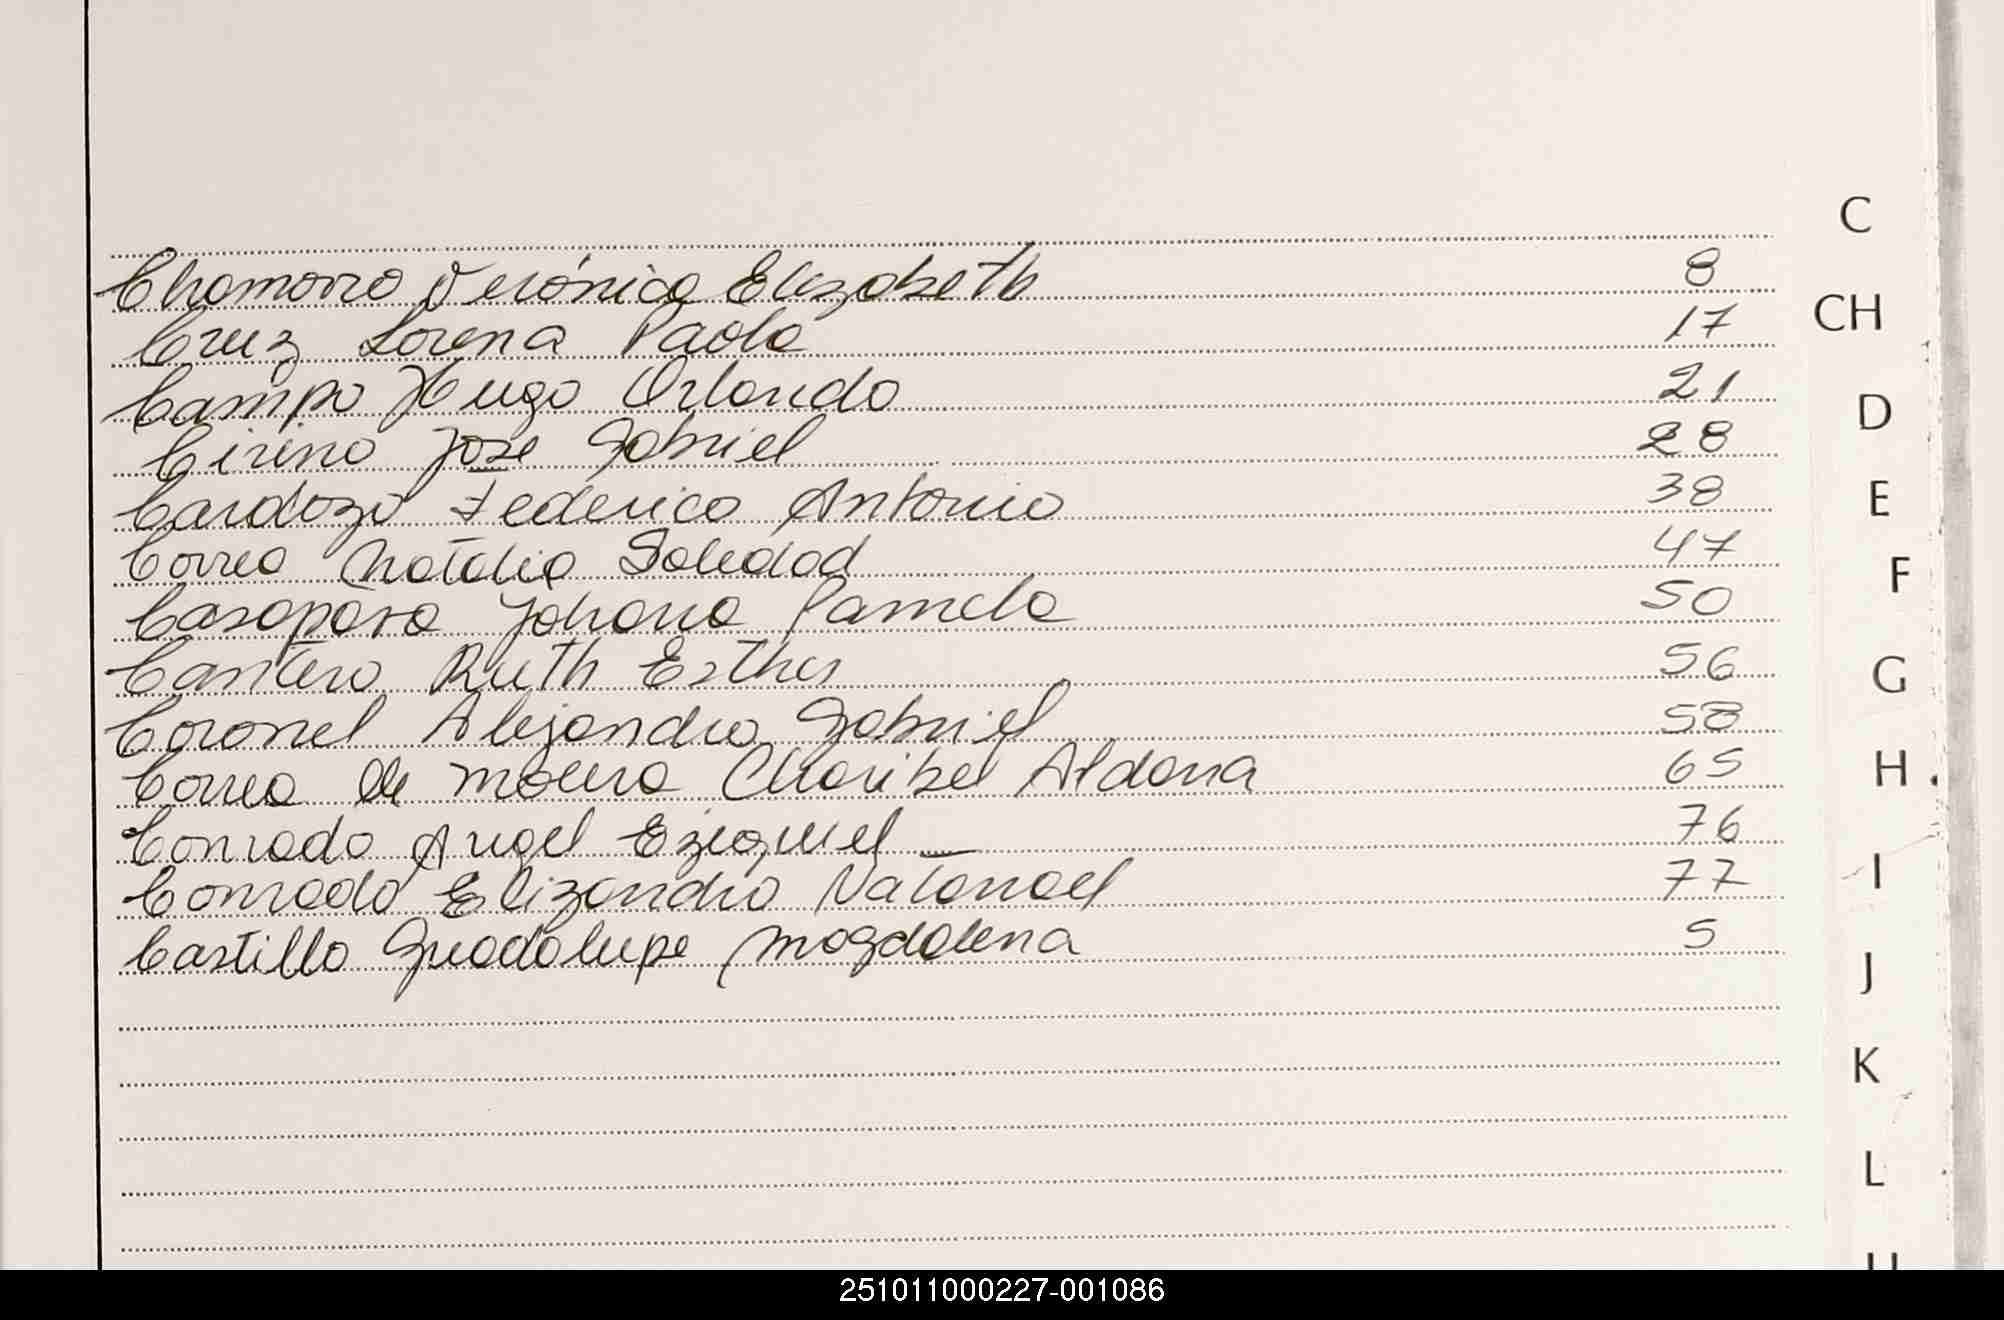 Chamorro Verónica Elizabeth 8
Cruz Lorena Paola 17
Campo Hugo Orlando 21
Cirino José Gabriel 28
Cardozo Federico Antonio 38
Correa Natalia Soledad 47
Casaposa Johana Pamela 50
Cantero Ruth Esther 56
Coronel Alejandro Gabriel 58
Correa de Moura Charibel Aldana 65
Conrado Angel Ezequiel 76
Conrado Elizandro Natanael 77
Castillo Guadalupe Magdalena 5
C
CH
D
E
F
G
H
I
J
K
L
251011000227-001086